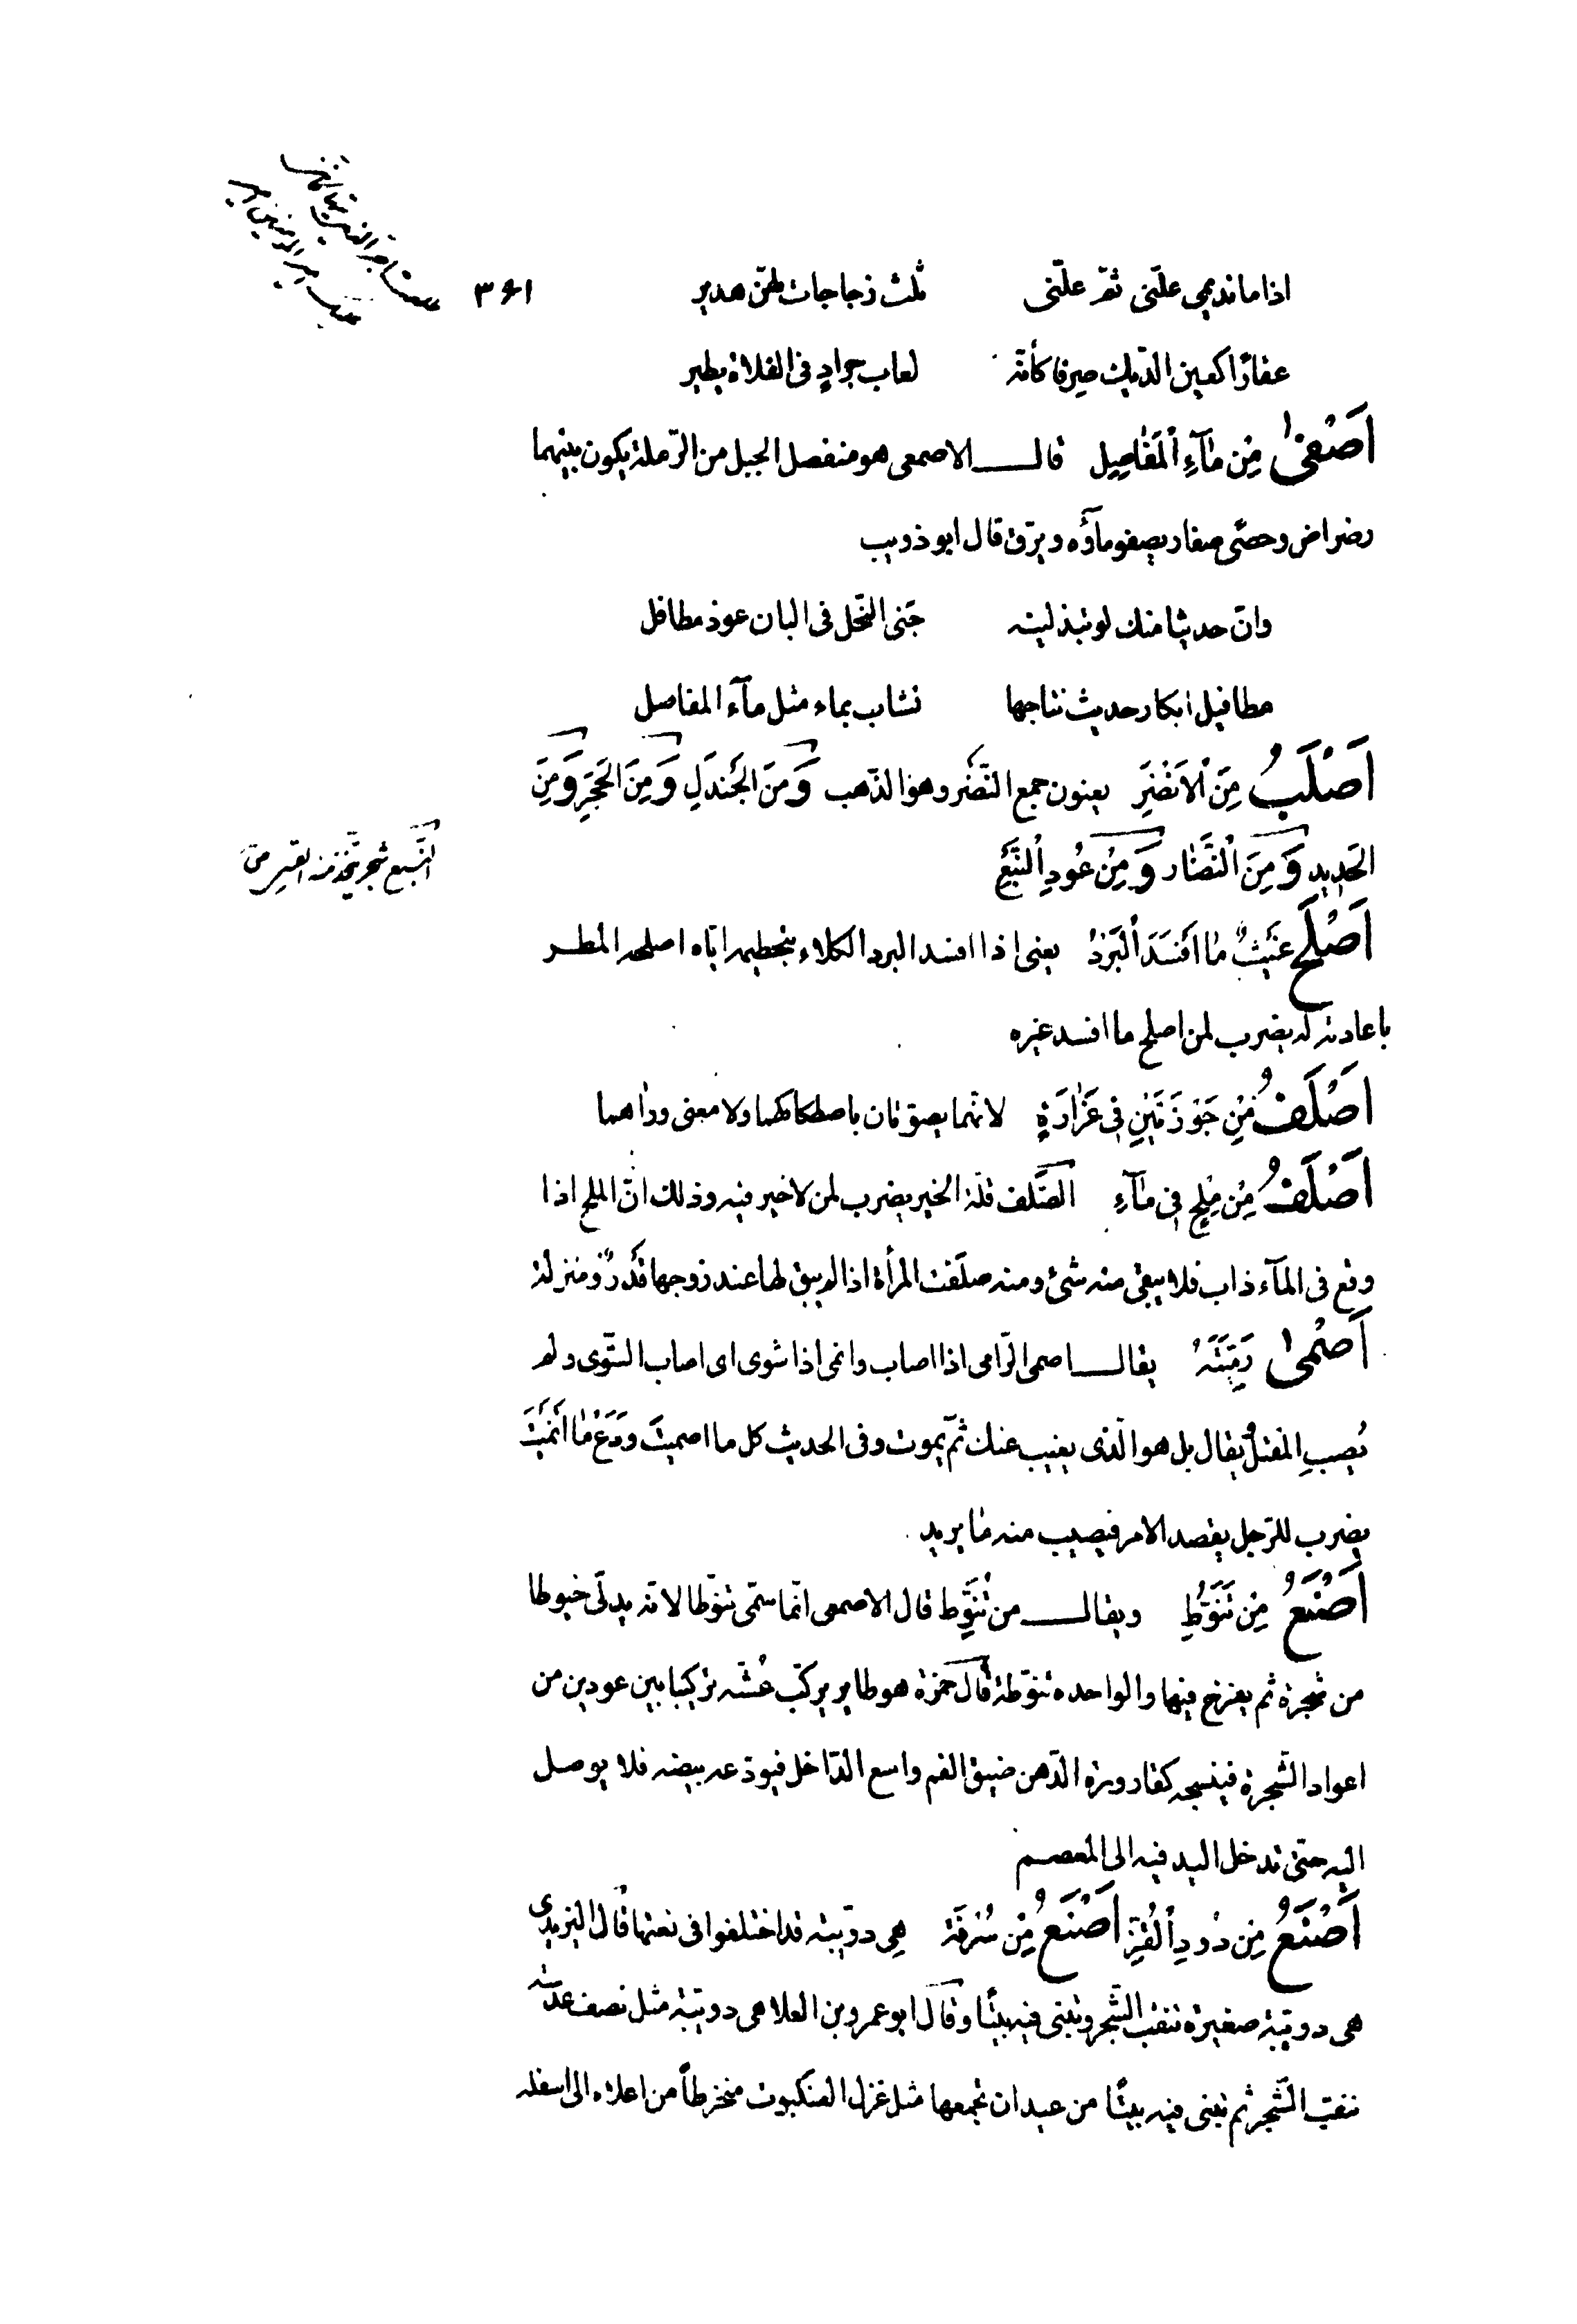 اذا ما نديمى علّنى ثمّ علّنى ثلث زجاجات لهنّ هدير
٣٤١
عقارًا كعين الدّيك صرفا كأنّه لعاب جرادٍ فى الفلاة يطير
اَصْفىٰ مِن مٰآءِ اْلمَفٰاصِلِ قال الاصمعى هو منفصل الجبل من الرّملة يكون بينهما
رضراض وحصًى صغار يصفو مآؤه ويرّق قال ابو ذويب
وانّ حديثا منك لو تبذلينه جَنى النّحل فى البان عوذ مطافل
مطافيل ابكار حديث نتاجها تشاب بماء مثل مآء المفاصل
اَصْلَبُ مِنَ اْلاَنْضُرِ يعنون جمع النَّضْر وهو الذّهب وَمِنَ الجَندَلِ وَمِنَ الحَجَرِ وَمِنَ
الحَدِيدِ وَمِنَ اْلنُّضَار وَمِنْ عُودِ اْلنَّبَعِ
النّبع شجر يتّخذ منه القسى
اَصْلَحَ غَيْثٌ مٰا اَفْسَدَ اْلبَرْدُ يعنى اذا افسد البرد الكلاء بتحطيمه ايّاه اصلحه المطر
باعادته له يضرب لمن اصلح ما افسد غيره
اَصْلَفُ مِنْ جَوْزَتَيْنِ فِى غَرٰارَةٍ لانّهما يصوّتان باصطكاكهما ولا معنى وراهما
اَصْلَفُ مِنْ مِلْحٍ فِى مٰآءٍ الصَّلف قلّة الخير يضرب لمن لا خير فيه وذلك انّ الملح اذا
وقع فى المآء ذاب فلا يبقى منه شئ ومنه صلَفت المرأة اذا لم يبق لها عند زوجها قَدْرٌ ومنزلة
اَصْمىٰ رَمِيَّتَهُ يقال اصمى الرّامى اذا اصاب وانمى اذا شوى اى اصاب الشّوى ولم
يُصبِ المَقْتَلُ يقال بل هو الّذى يغيب عنك ثمّ يموت وفى الحديث كل ما اصميتَ ودَعْ مٰا اَنْمَيْتَ
يضرب للرّجل يقصد الامر فيصيب منه مٰا يريد
اَصْنَعُ مِن تَنَوُّطٍ ويقال من تُنَوِّط قال الاصمعى انّما سمّى تنوّطا لانّه يدلّى خيوطا
من شجرة ثم يفرخ فيها والواحده تنوّطة قال حمزة هو طاير يركّب عُشّه تركيبا بين عودين من
اعواد الشّجرة فينسجه كقارورة الدّهن ضيق الفم واسع الدّاخل فيودعه بيضه فلا يوصل
اليه حتّى تدخل اليد فيه الى المعصم
اَصْنَعُ مِن دُودِ اْلقَزِّ اَصْنَعُ مِنْ سُرْفَة هِى دويّبته قد اختلفوا فى نعتها قال اليزيدى
هى دويّبة صغيرة تنقب الشّجر وتبنى فيه بيتًا وقال ابو عمرو بن العلا هى دويّبة مثل نصف عدسة
تنقب الشّجر ثم تبنى فيه بيتًا من عيدان تجمعها مثل غزل العنكبوت منخرطاً من اعلاه الى اسفله